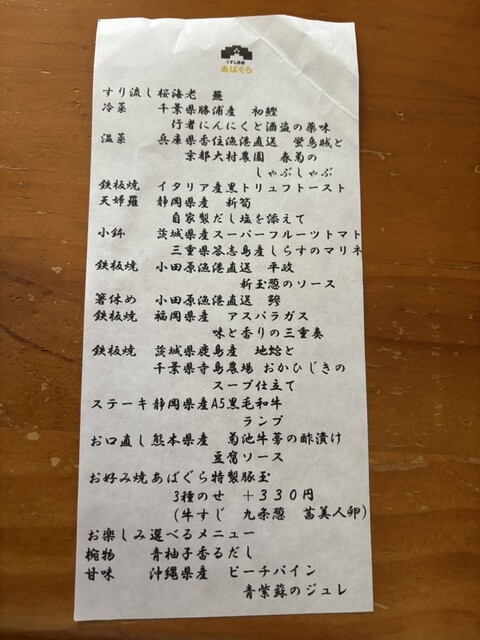 くずし鉄板
あばぐら
すり流し 桜海老 蕪
冷菜 千葉県勝浦産 初鰹
行者にんにくと酒盗の薬味
温菜 兵庫県香住漁港直送 蛍烏賊と
京都大村農園 春菊の
しゃぶしゃぶ
鉄板焼 イタリア産黒トリュフトースト
天婦羅 静岡県産 新筍
自家製だし塩を添えて
小鉢 茨城県産スーパーフルーツトマト
三重県答志島産しらすのマリネ
鉄板焼 小田原漁港直送 平政
新玉葱のソース
箸休め 小田原漁港直送 鰺
鉄板焼 福岡県産 アスパラガス
味と香りの三重奏
鉄板焼 茨城県鹿島産 地蛤と
千葉県寺島農場 おかひじきの
スープ仕立て
ステーキ 静岡県産A5黒毛和牛
ランプ
お口直し 熊本県産 菊池牛蒡の酢漬け
豆腐ソース
お好み焼 あばぐら特製豚玉
3種のせ +330円
(牛すじ 九条葱 茜美人卵)
お楽しみ選べるメニュー
椀物 青柚子香るだし
甘味 沖縄県産 ピーチパイン
青紫蘇のジュレ